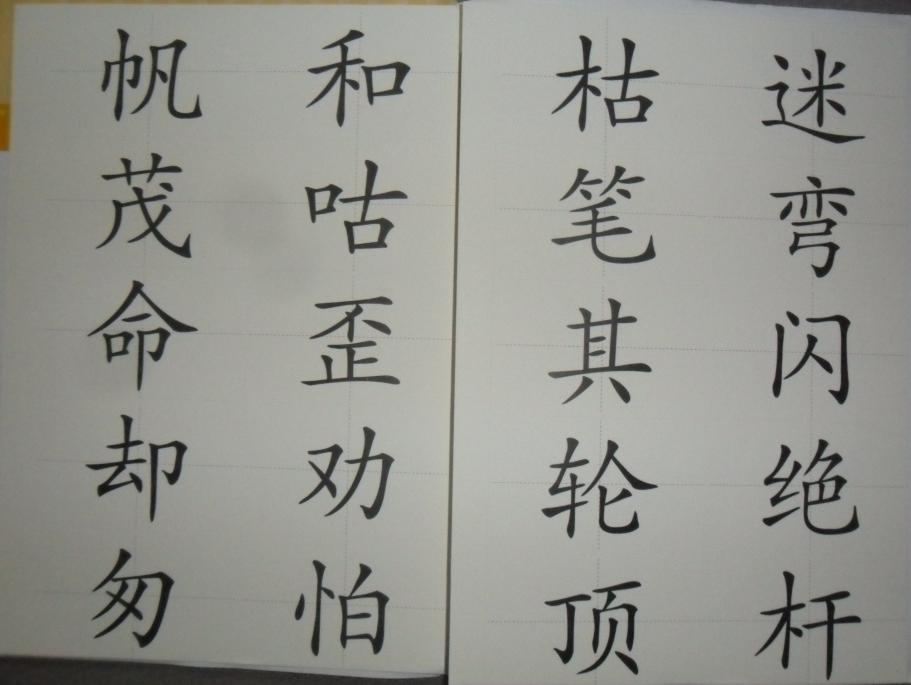 帆 和 枯 迷
茂 咕 笔 弯
命 歪 其 闪
却 劝 轮 绝
匆 怕 顶 杆